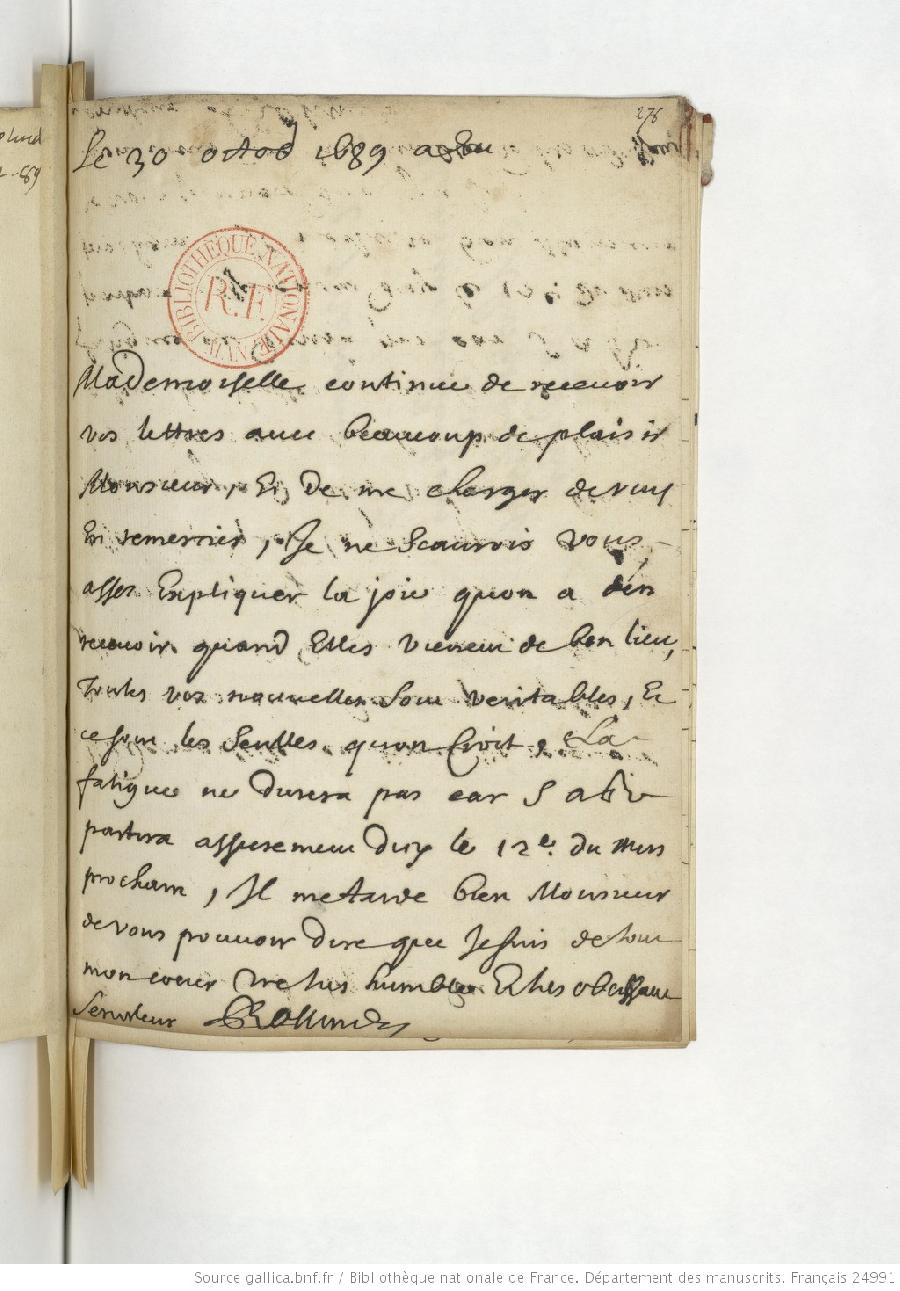 276
Le 30 octob 1689 a
Mademoiselle continue de recevoir
vos lettres avec beaucoup de plaisir
Monsieur, Et de me charger de vous
En remercier, Je ne scaurois vous
asses Expliquer la joie quon a den
recevoir quand Elles vienent de bon lieu,
Toutes vos nouvelles sont veritables, Et
ce sont les seulles quon Croit, La
fatigue ne durera pas car S a
partira assurement Dicy le 12e. du mois
prochain, Il me tarde bien Monsieur
de vous pouvoir Dire que Je suis de tout
mon coeur Vre tres humble Et tres obeissant
Serviteur
BIBLIOTHEQUE NATIONALE
R.F.
MAN
89
Source gallica.bnf.fr / Bibliothèque nationale de France. Département des manuscrits. Français 24991